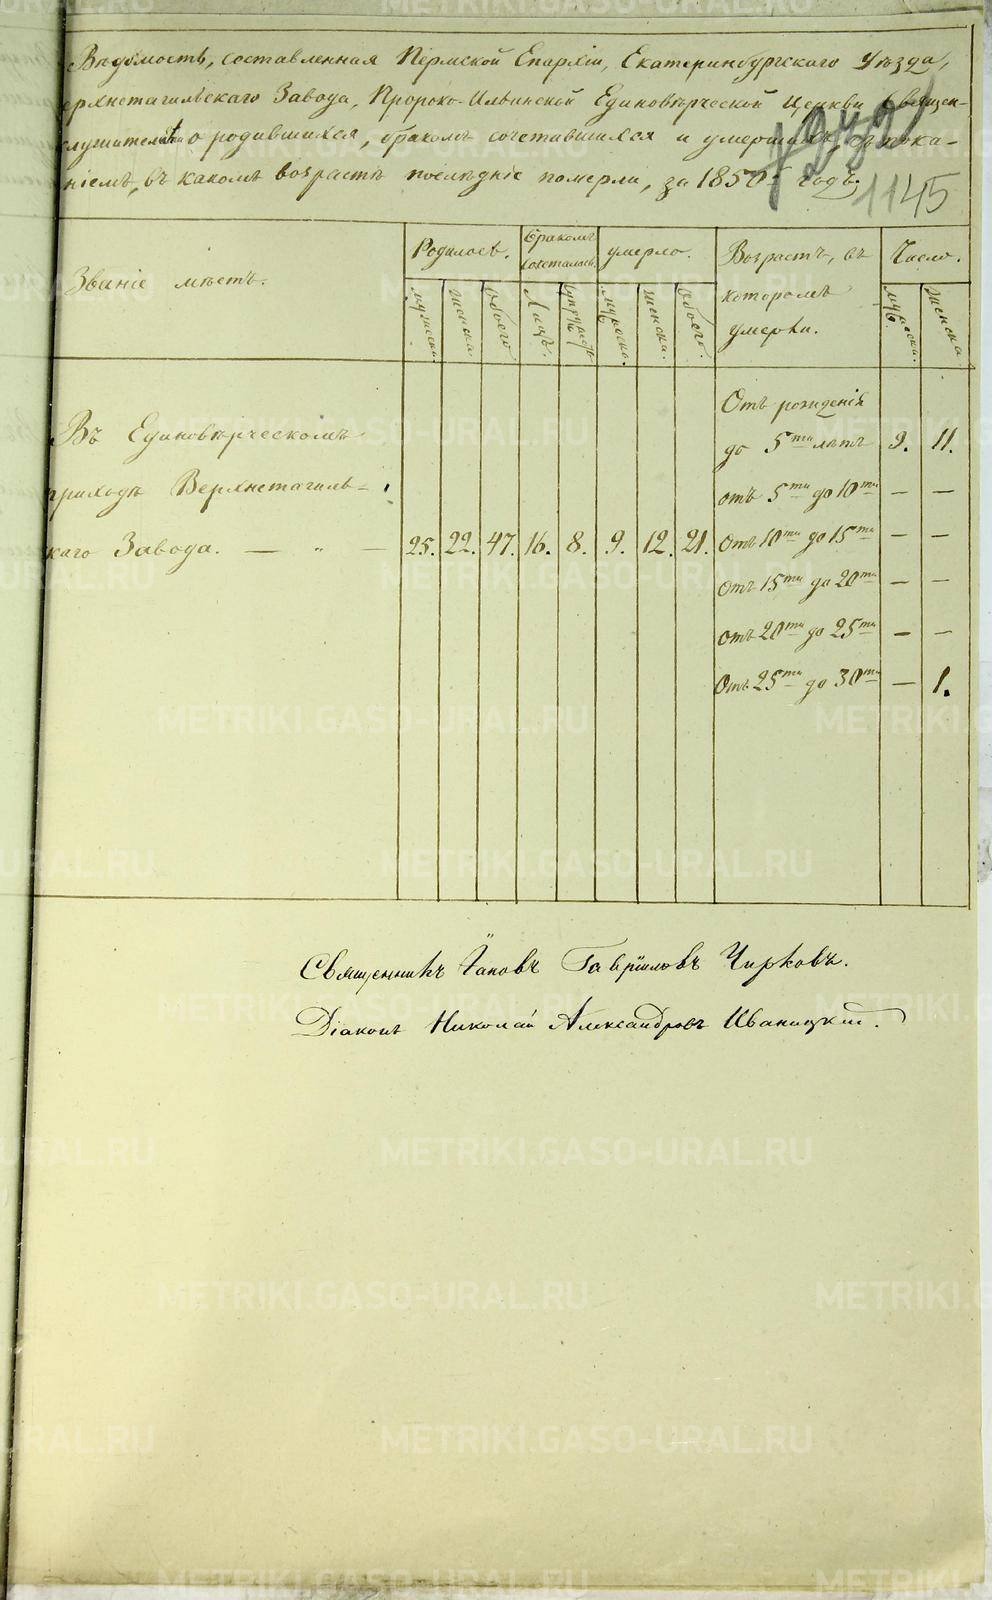 Вѣдомость, составленная Пермской Епархіи, Екатеринбургскаго Уѣзда,
ерхнетагильскаго Завода, Пророко-Ильинской Единовѣрческой Церкви Священ-
служителями о родившихся, бракомъ сочетавшихся и умершихъ, съ пока-
ніемъ, въ какомъ возрастѣ послѣдніе померли, за 1850й годъ.
1145
Званіе мѣстъ.
Родилось.
Бракомъ сочеталось.
умерло.
Возрастъ, въ которомъ умерли.
Число.
мужеска.
женска.
обоего
Лицъ.
супружествъ
мужеска.
женска.
обоего.
мужеска.
женска
Отъ рожденія
до 5ти лѣтъ 9. 11.
отъ 5ти до 10ти — —
Въ Единовѣрческомъ
приходѣ Верхнетагиль-
каго Завода. — „ — 25. 22. 47. 16. 8. 9. 12. 21.
Отъ 10ти до 15ти — —
Отъ 15ти до 20ти — —
отъ 20ти до 25ти — —
Отъ 25ти до 30ти — 1.
Священникъ Іаковъ Гавріиловъ Чирковъ.
Діаконъ Николай Александровъ Иваницкій.
METRIKI.GASO-URAL.RU